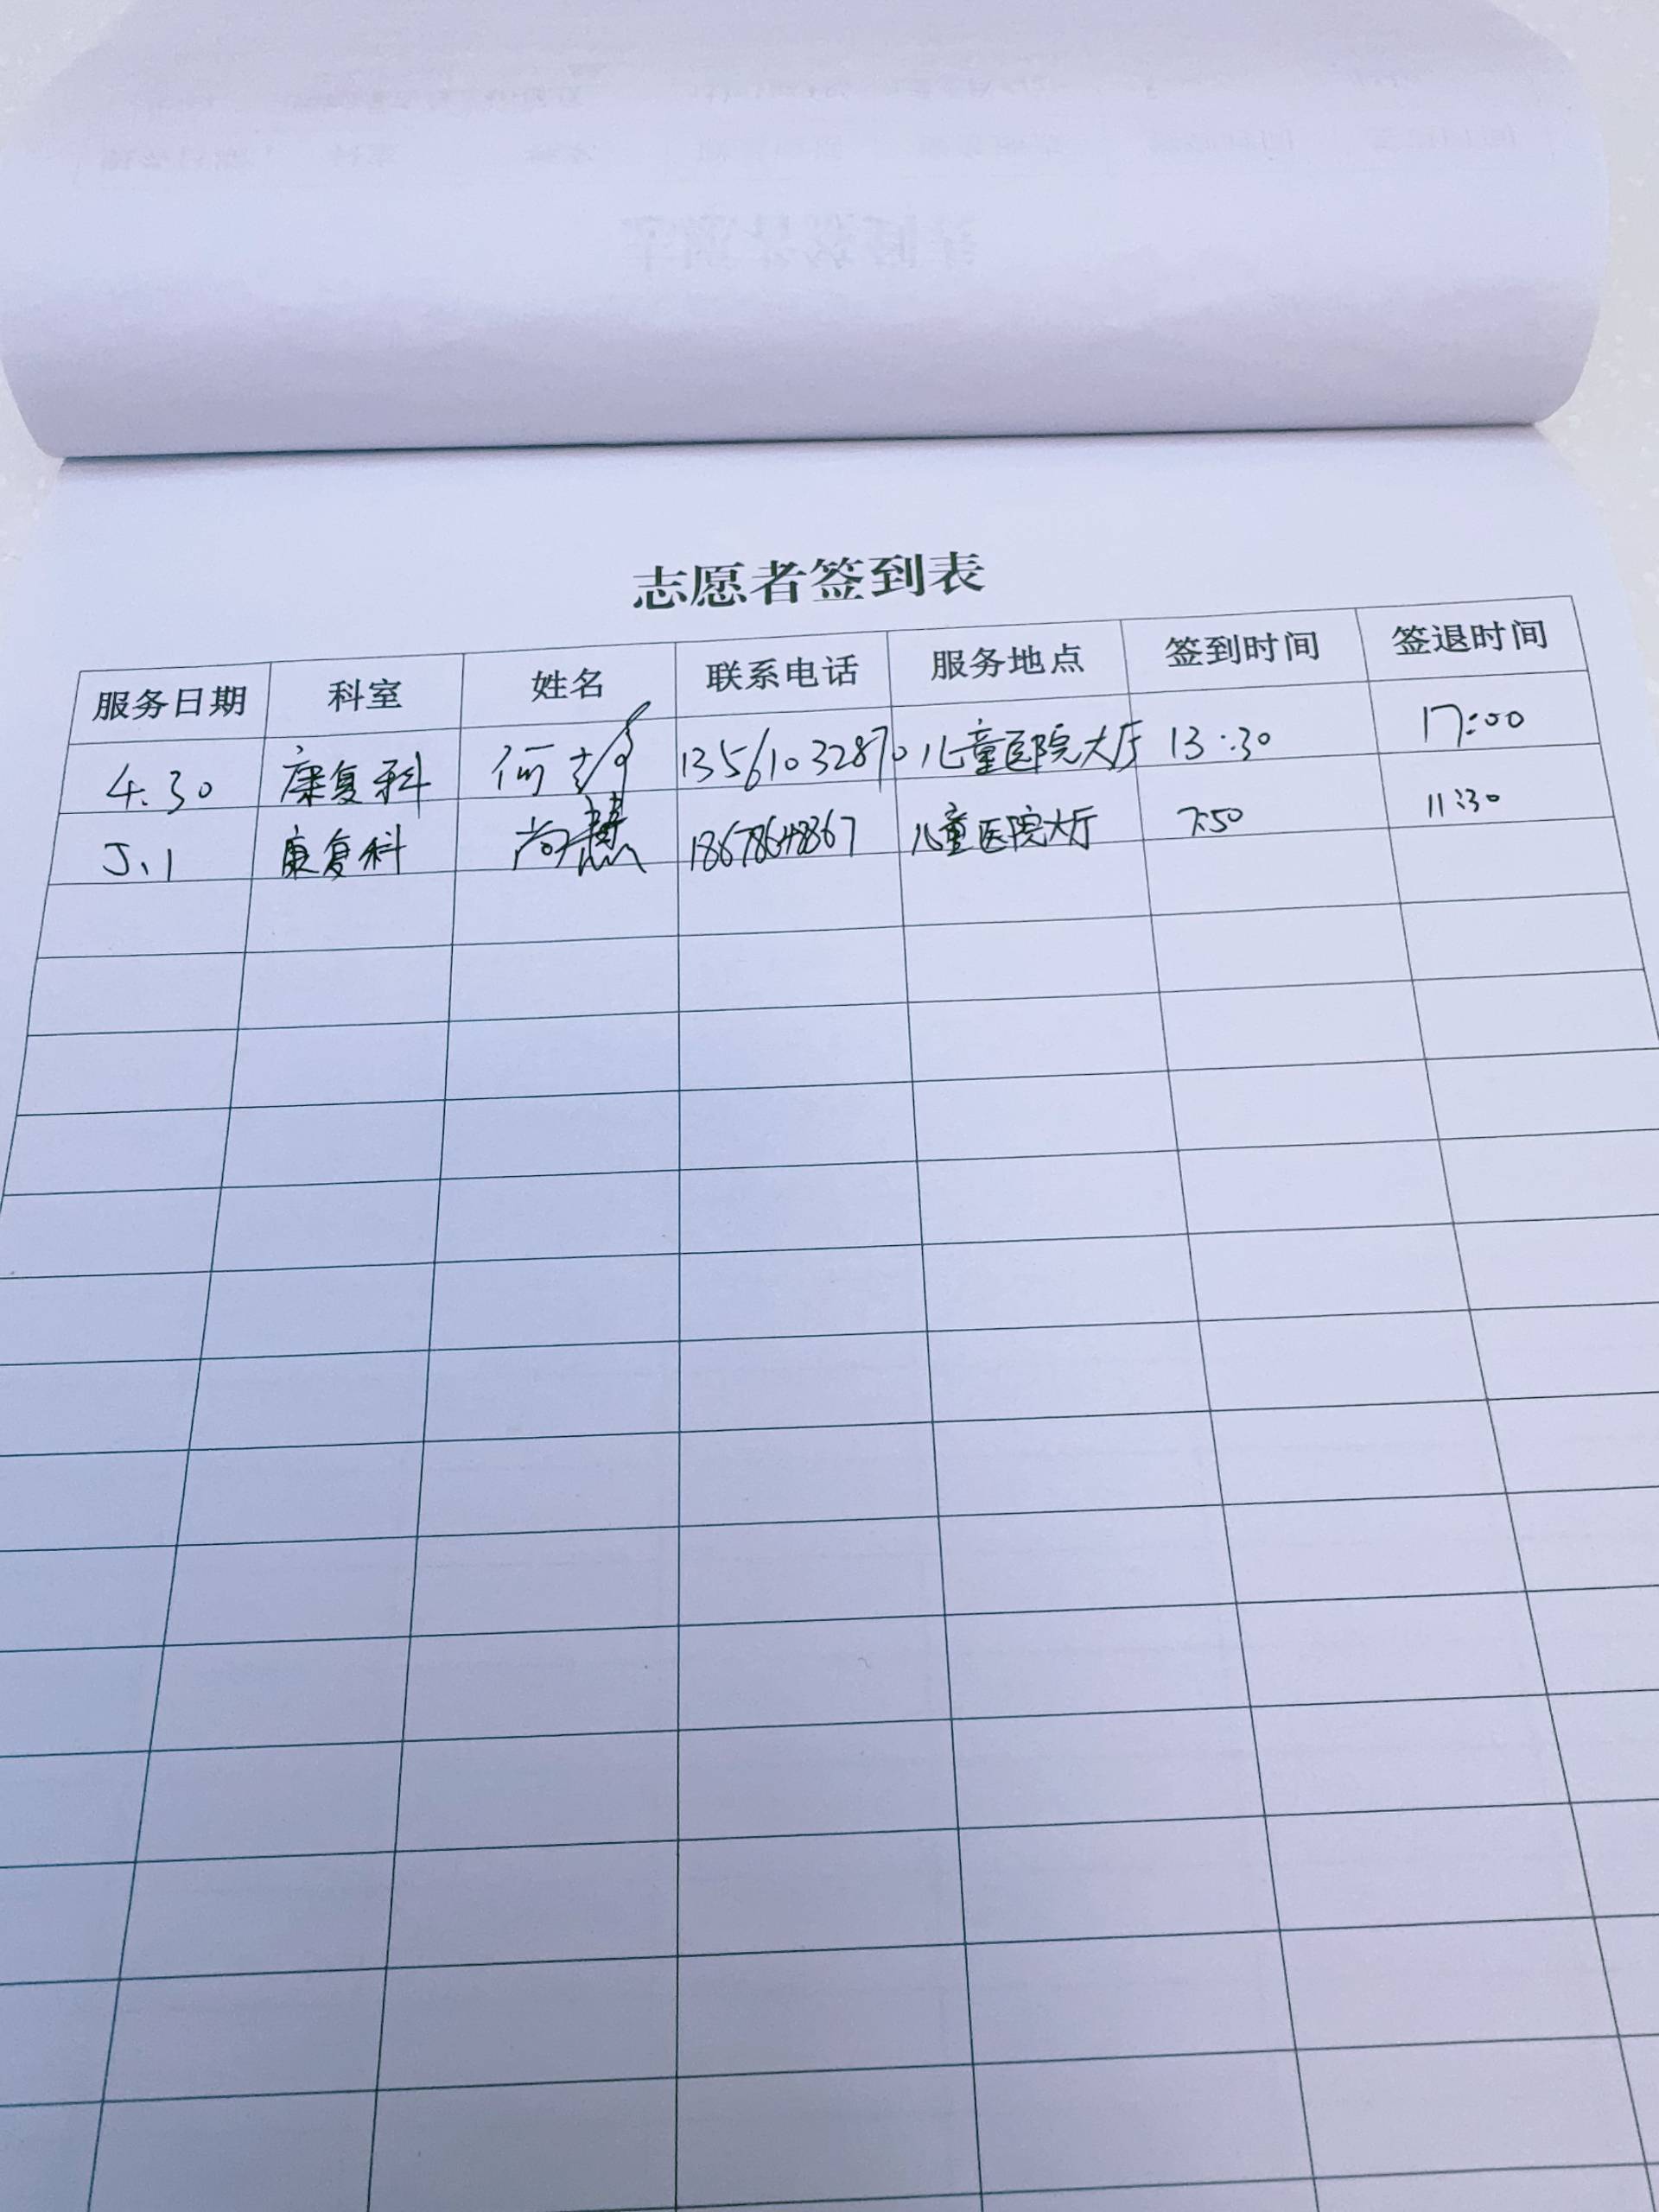 志愿者签到表
服务日期 科室 姓名 联系电话 服务地点 签到时间 签退时间
4.30 康复科 何 13561032870 儿童医院大厅 13:30 17:00
5.1 康复科 尚慧 18678648367 儿童医院大厅 7:50 11:30